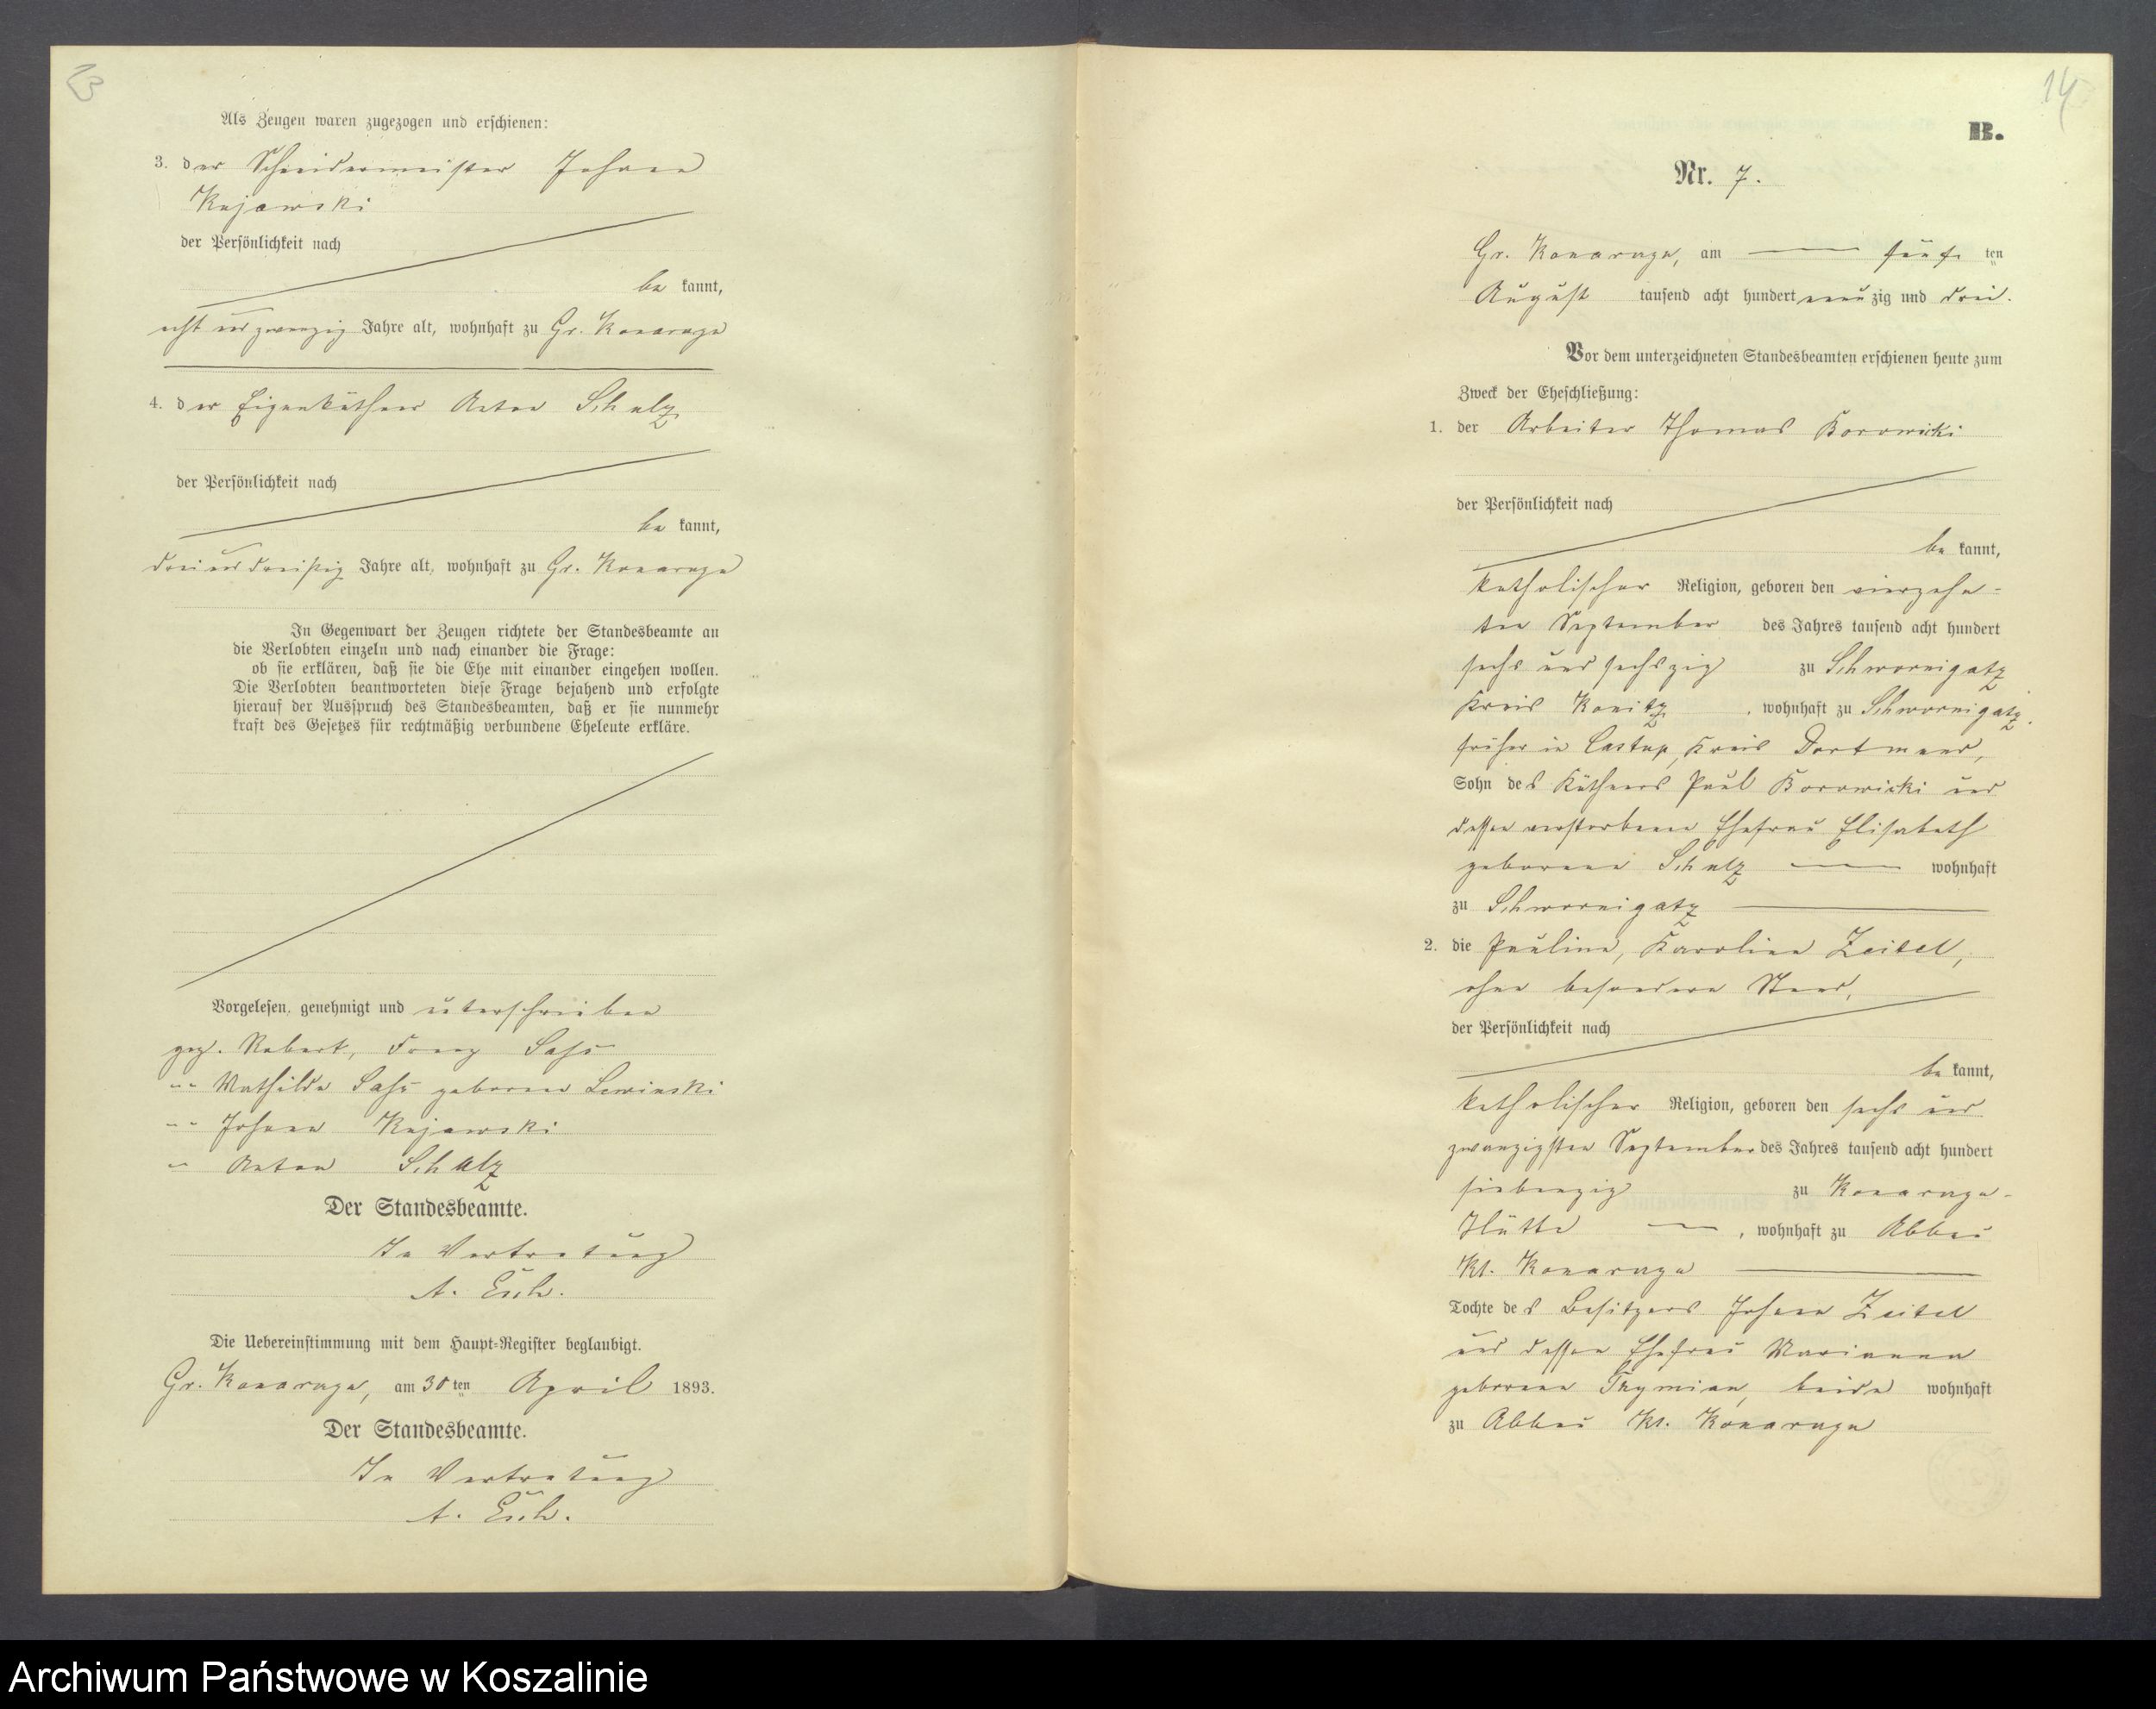 Als Zeugen waren zugezogen und erschienen:
3. der Schneidermeister Johann
Kujawski
der Persönlichkeit nach
be kannt,
acht und zwanzig Jahre alt, wohnhaft zu Gr. Konarzyn
4. der Eigenkäthner Anton Schulz
der Persönlichkeit nach
be kannt,
drei und dreißig Jahre alt, wohnhaft zu Gr. Konarzyn
In Gegenwart der Zeugen richtete der Standesbeamte an
die Verlobten einzeln und nach einander die Frage:
ob sie erklären, daß sie die Ehe mit einander eingehen wollen.
Die Verlobten beantworteten diese Frage bejahend und erfolgte
hierauf der Ausspruch des Standesbeamten, daß er sie nunmehr
kraft des Gesetzes für rechtmäßig verbundene Eheleute erkläre.
Vorgelesen, genehmigt und unterschrieben
gez. Robert, Franz Saß
" Mathilde Saß geborene Lewinski
" Johann Kujawski
" Anton Schulz
Der Standesbeamte.
In Vertretung
A.
Die Uebereinstimmung mit dem Haupt-Register beglaubigt.
Gr. Konarzyn, am 30 ten April 1893.
Der Standesbeamte.
In Vertretung
A.
14
B.
Nr. 7.
Gr. Konarzyn, am fünf ten
August tausend acht hundert neun zig und drei.
Vor dem unterzeichneten Standesbeamten erschienen heute zum
Zweck der Eheschließung:
1. der Arbeiter Thomas Borowicki
der Persönlichkeit nach
be kannt,
katholischer Religion, geboren den vierzehn-
ten September des Jahres tausend acht hundert
sechs und sechszig zu Schwornigatz
Kreis Konitz, wohnhaft zu Schwornigatz,
früher in Castrop, Kreis Dortmund,
Sohn des Käthners Paul Borowicki und
dessen verstorbene Ehefrau Elisabeth
geborene Schulz wohnhaft
zu Schwornigatz
2. die Pauline, Karoline Zeitel,
ohne besonderen Stand,
der Persönlichkeit nach
be kannt,
katholischer Religion, geboren den sechs und
zwanzigsten September des Jahres tausend acht hundert
siebenzig zu Konarzyn-
Hütte, wohnhaft zu Abbau
Kl. Konarzyn
Tochte des Besitzers Johann Zeitel
und dessen Ehefrau Marianna
geborene beide wohnhaft
zu Abbau Kl. Konarzyn
Archiwum Państwowe w Koszalinie